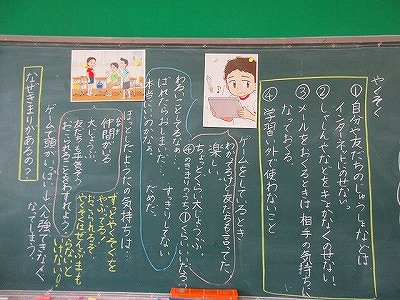 やくそく
①自分や友だちのじゅうしょなどは
インターネットにのせない。
②しゃしんやなどをきょかなくのせない
③メールをおくるときは相手の気持ちに
なっておくる。
④学習い外で使わないこと
ゲームをしているとき
わかるけど友だちも言ってた
ちょっとくらい大じょうぶ…
楽しい。
④のきまりのうち①くらいいいだろう
わるいことしてるなぁ…
ばれたらおしまいだ…
すっきりしてない
本当にいいのかなぁ。
だめだ。
ほっとしたようたの気持ちは…
仲間がいる
大じょうぶ…
友だちも平気そう
おこられることをわすれよう
ずっとやくそくを
やぶってると
おこられるぞ
やくそくはぜんぶまも
らないと
いけない!
ゲームで頭がいっぱい→べん強できなく
なってしまう
なぜきまりがあるの?